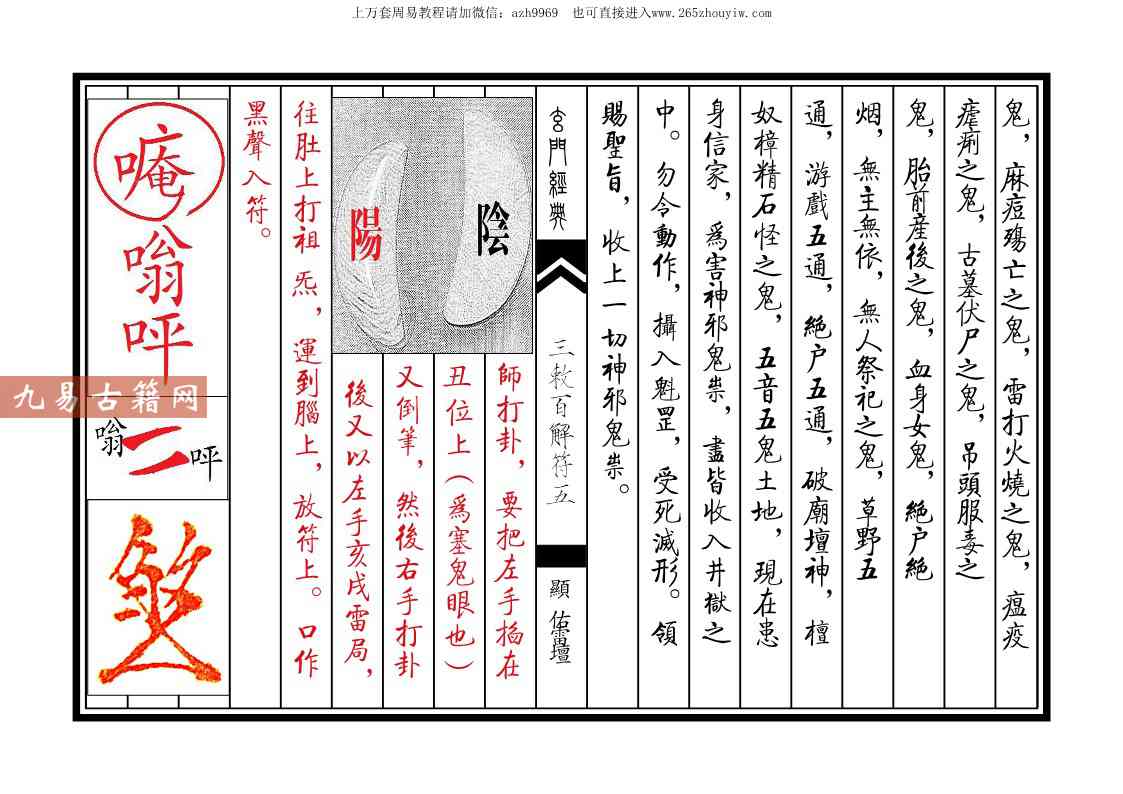 上万套周易教程请加微信：azh9969　也可直接进入www.265zhouyiw.com
鬼，麻痘殤亡之鬼，雷打火燒之鬼，瘟疫
瘧痢之鬼，古墓伏尸之鬼，吊頭服毒之
鬼，胎前産後之鬼，血身女鬼，絕户絕
烟，無主無依，無人祭祀之鬼，草野五
通，游戲五通，絕户五通，破廟壇神，檀
奴樟精石怪之鬼，五音五鬼土地，現在患
身信家，爲害神邪鬼祟，盡皆收入井獄之
中。勿令動作，攝入魁罡，受死滅形。領
賜聖旨，收上一切神邪鬼祟。
玄門經典
三敕百解符五
顯佑雷壇
陰
陽
師打卦，要把左手掐在
丑位上（爲塞鬼眼也）
又倒筆，然後右手打卦
後又以左手亥戌雷局，
往肚上打祖炁，運到腦上，放符上。口作
黑聲入符。
唵
嗡
呯
嗡
呯
九易古籍网